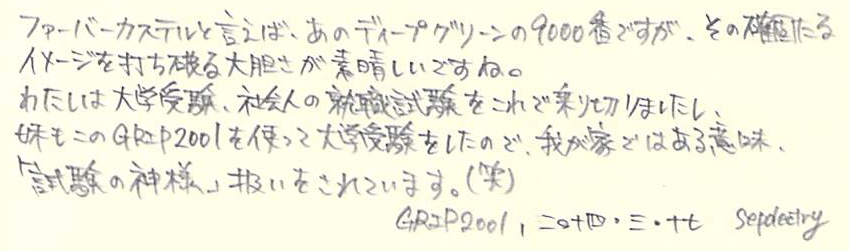 ファーバーカステルと言えば、あのディープグリーンの9000番ですが、その確固たる
イメージを打ち破る大胆さが素晴しいですね。
わたしは大学受験、社会人の就職試験をこれで乗り切りましたし、
妹もこのGRIP2001を使って大学受験をしたので、我が家ではある意味、
「試験の神様」扱いをされています。(笑)
GRIP2001, 二〇十四・三・十七